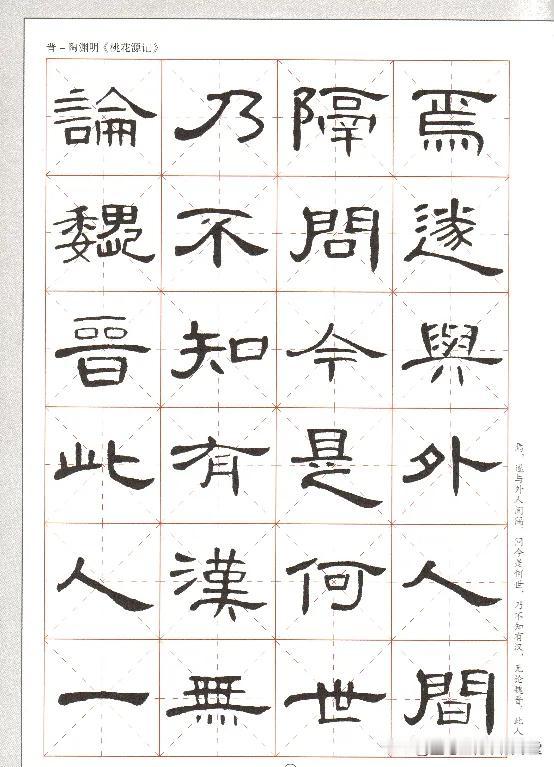 晋-陶渊明《桃花源记》
焉遂與外人間
隔問今是何世
乃不知有漢無
論魏晉此人一
焉，遂与外人间隔。问今是何世，乃不知有汉，无论魏晋。此人